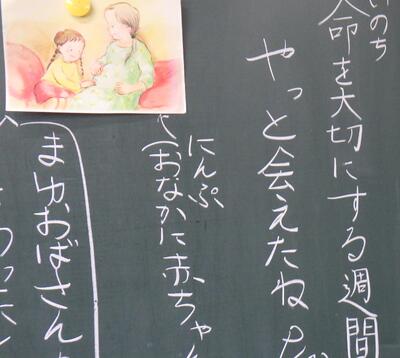 いのち
命を大切にする週間
やっと会えたね
にんぷ
(おなかに赤ちゃん
まゆおばさん